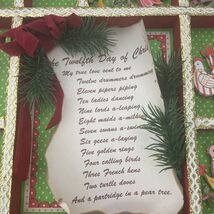 The Twelfth Day of Chris
My true love sent to me
Twelve drummers drumming
Eleven pipers piping
Ten ladies dancing
Nine lords a-leaping
Eight maids a-milking
Seven swans a-swimming
Six geese a-laying
Five golden rings
Four calling birds
Three French hens
Two turtle doves
And a partridge in a pear tree.